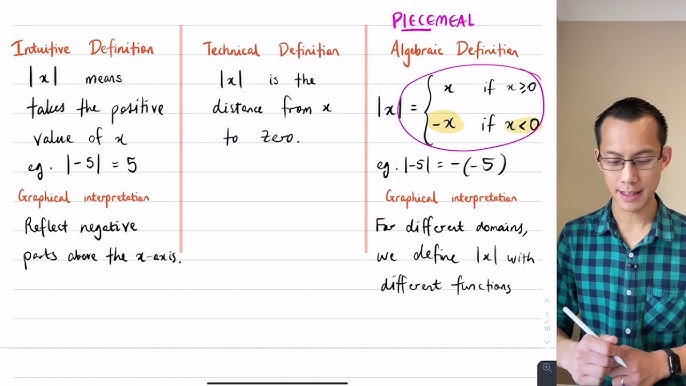 PIECEMEAL
Intuitive Definition
|x| means
takes the positive
value of x
eg. |-5| = 5
Graphical interpretation
Reflect negative
parts above the x-axis.
Technical Definition
|x| is the
distance from x
to zero.
Algebraic Definition
|x| = { x if x ≥ 0
-x if x < 0
eg. |-5| = -(-5)
Graphical interpretation
For different domains,
we define |x| with
different functions